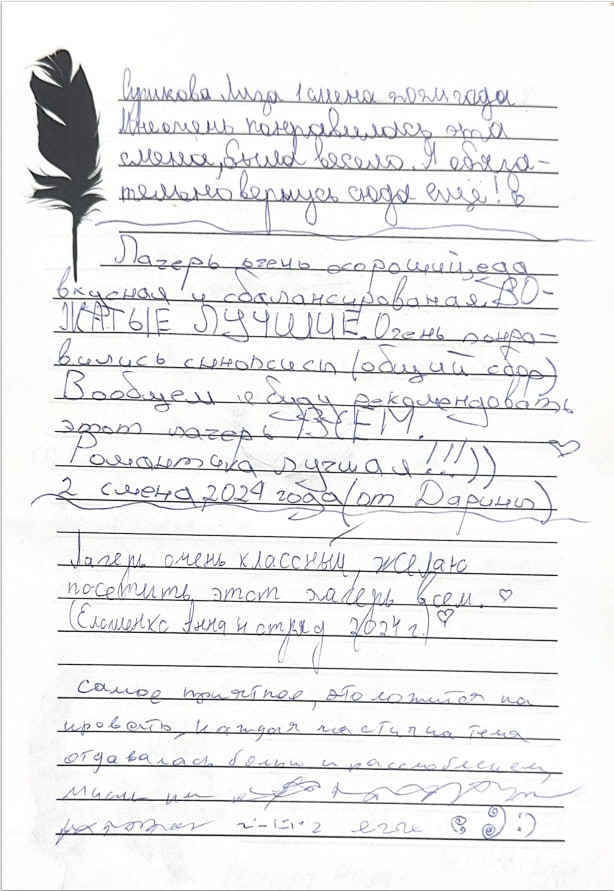 Сурикова Лиза 1 смена 2024 года
Мне очень понравилась эта
смена, была весело. Я обяза-
тельно вернусь сюда ещё! ♡
Лагерь очень хороший, еда
вкусная и сбалансированая. ВО-
ЖАТЫЕ ЛУЧШИЕ. Очень понра-
вились синопсисы (общий сбор)
Вообщем я буду рекомендовать
этот лагерь ВСЕМ.
Романтика лучшая!!!)) ♡
2 смена 2024 года (от Дарины)
Лагерь очень классный, желаю
посетить этот лагерь всем. ♡
Анна 4 отряд 2024 г.) ♡
Самое приятное, это ложится на
кровать, каждая частица тела
отдавалась болью и расслоблением,
мысли
еле :)